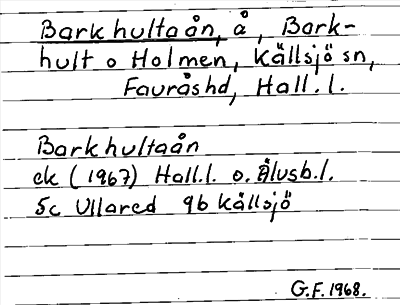 Barkhultaån, å, Bark-
hult o Holmen, Källsjö sn,
Fauråshd, Hall. l.
Barkhultaån
ek (1967) Hall.l. o. Älvsb.l.
5c Ullared 9b Källsjö
G.F. 1968.